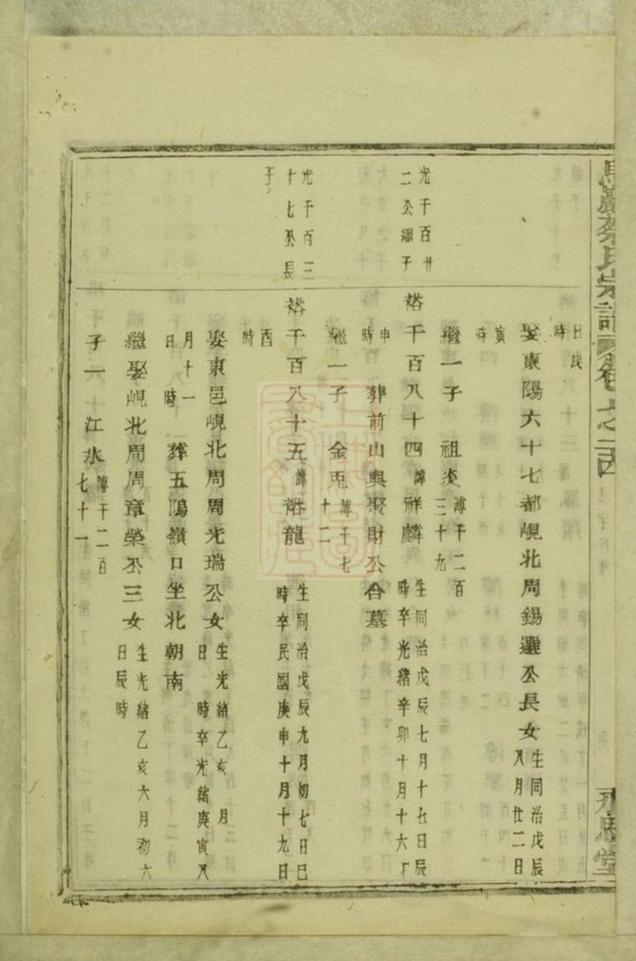 日戌時
娶東陽六十七都峴北周錫選公長女 生同治戊辰八月廿二日寅時
繼一子 祖炎 傳千二百三十九
光千百廿二公繼子
裕千百八十四 諱祥麟 生同治戊辰七月十七日辰時卒光緒辛卯十月十六日申時
葬前山與聚財公合墓
繼一子 金兎 傳千七十二
光千百三十七公長子
裕千百八十五 諱裕龍 生同治戊辰九月初七日巳時卒民國庚申十月十九日酉時
娶東邑峴北周周光瑞公女 生光緒乙亥 月 日 時卒光緒庚寅八月十一日 時
葬五鳴嶺口坐北朝南
繼娶峴北周周章榮公三女 生光緒乙亥六月初六日辰時
子一 江水 傳千二百七十一